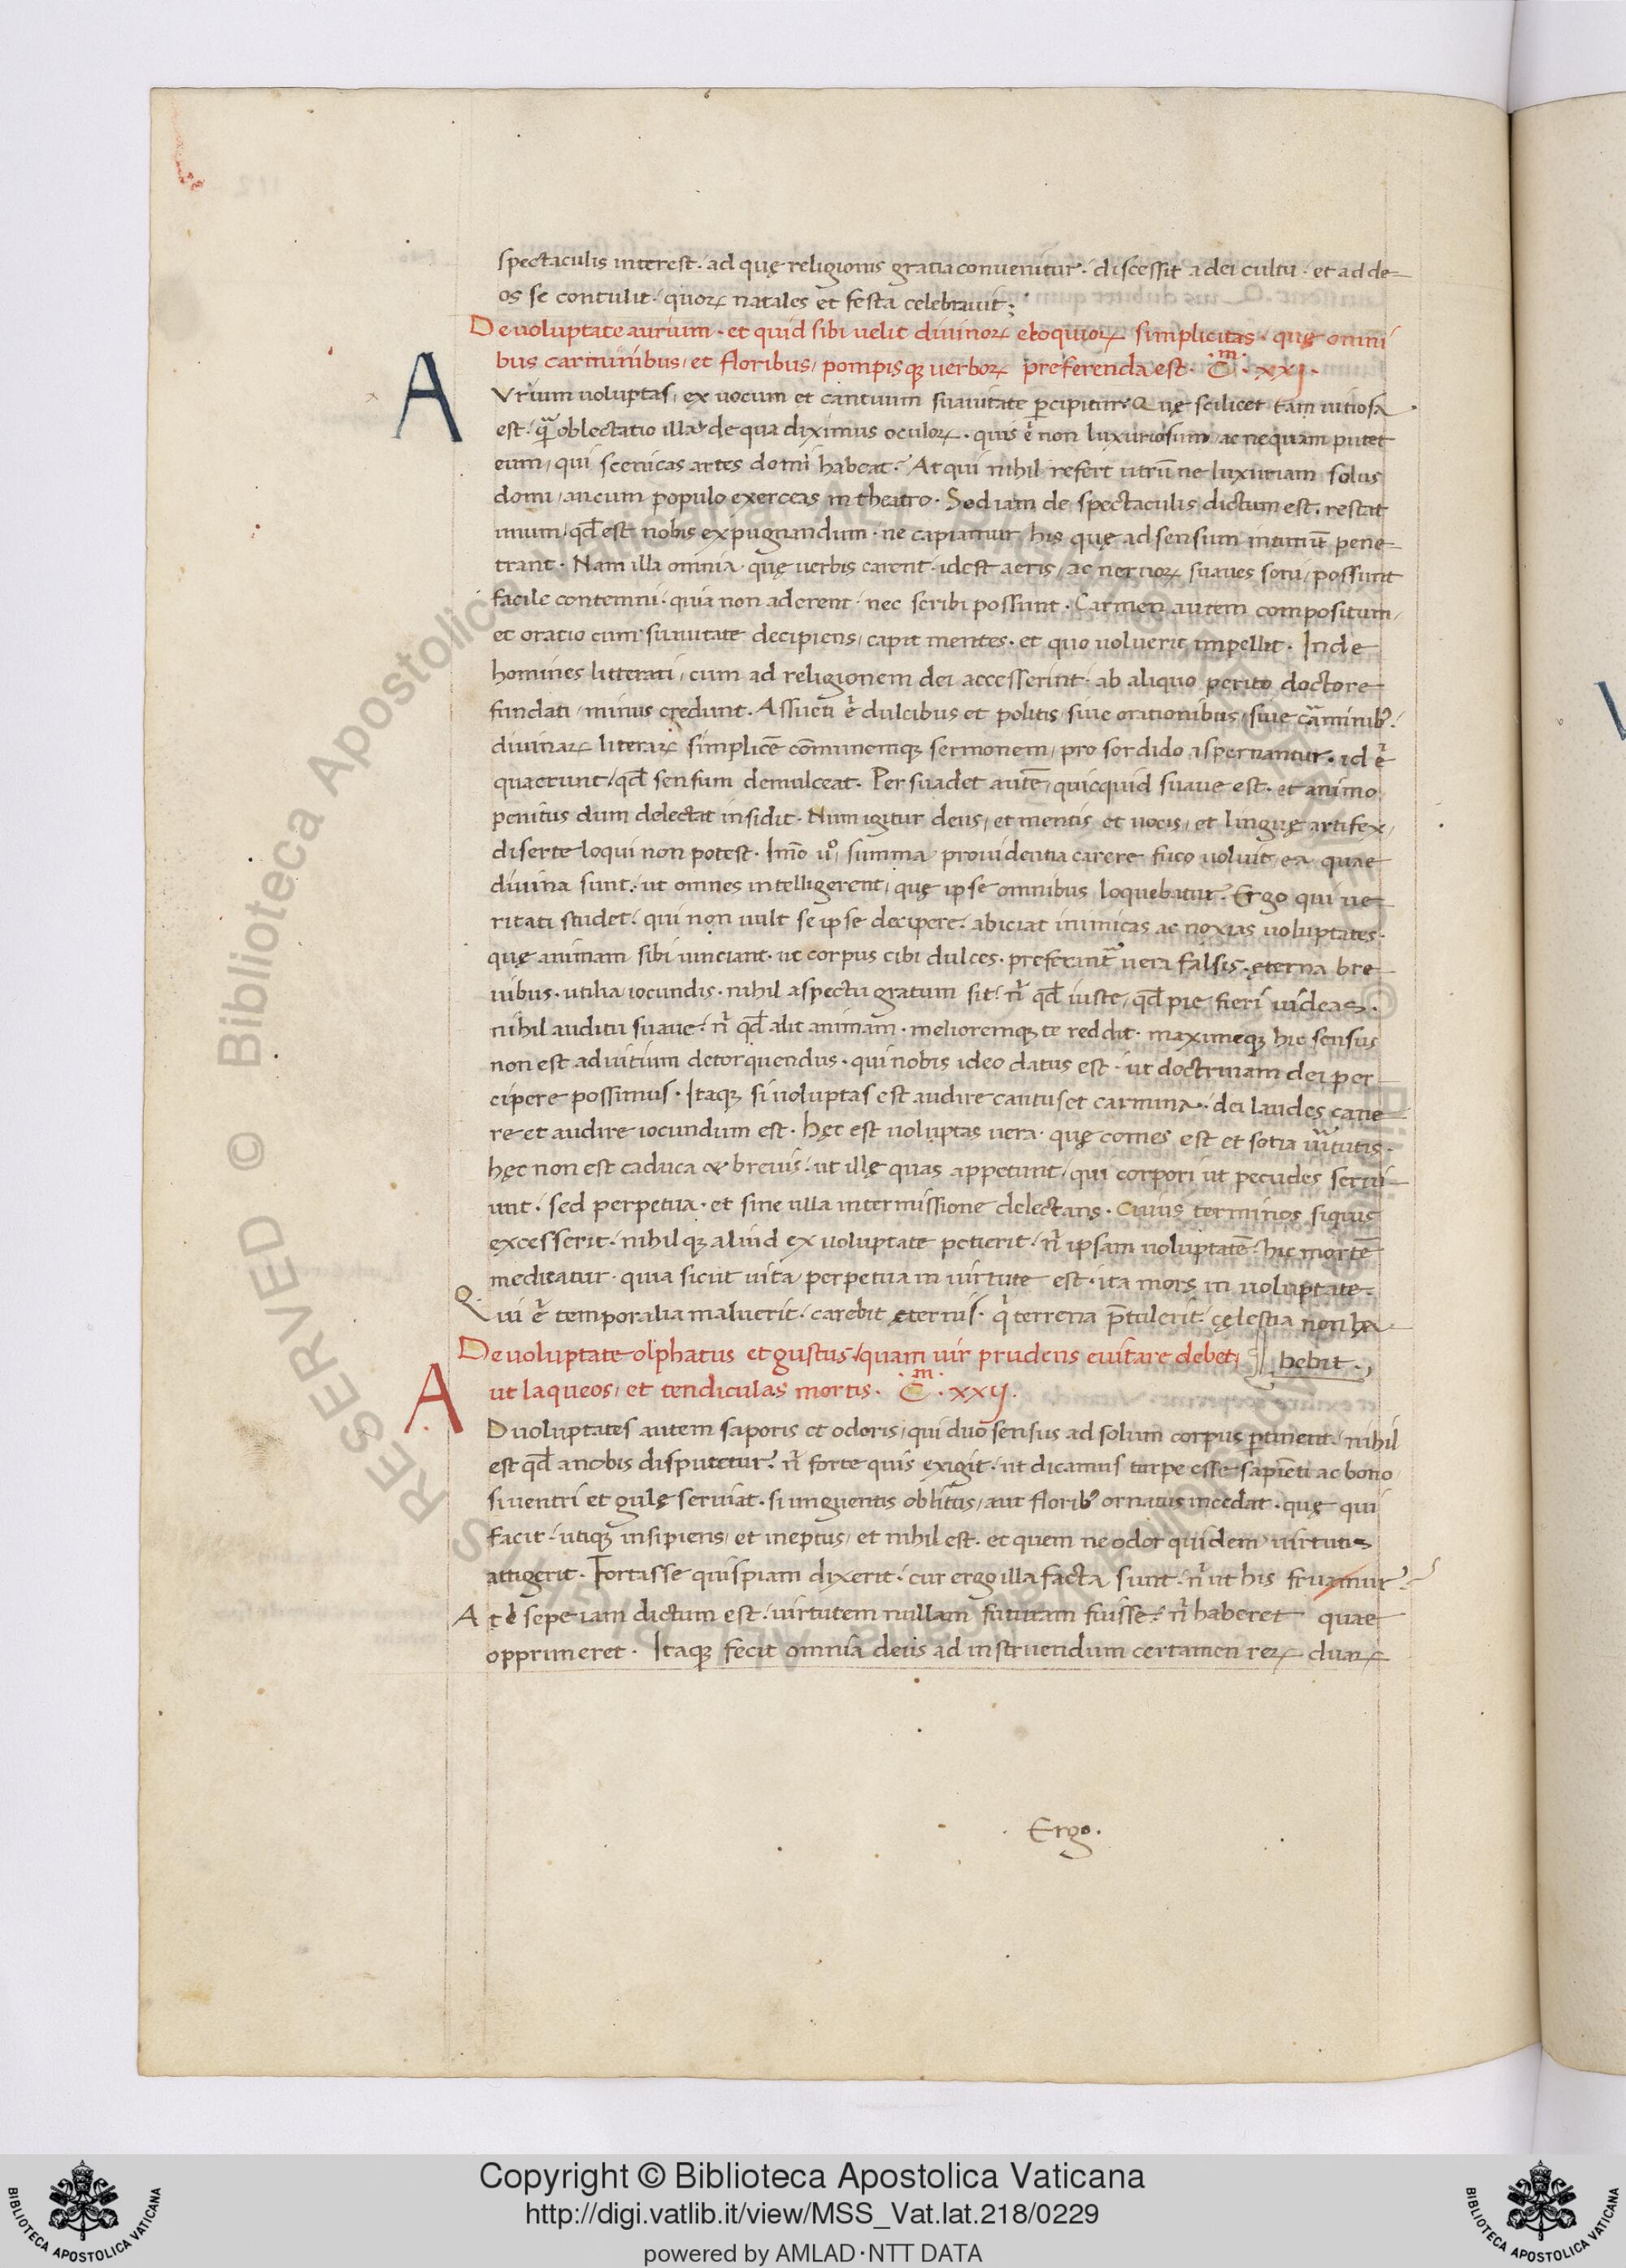 spectaculis interest · ad quę religionis gratia convenitur · discessit a dei cultu · et ad de-
os se contulit · quorꝝ natales et festa celebravit ;
De voluptate aurium · et quid sibi velit divinorꝝ eloquiorꝝ simplicitas · quę omni
bus carminibus / et floribus / pompisqꝫ verborꝝ preferenda est · C.m · xxj ·
A
Vrium voluptas / ex vocum et cantuum suavitate p̱cipitur · Quę scilicet tam vitiosa
est · q̃ oblectatio illa / de qua diximus oculorꝝ · quis .n̄. non luxuriosum / ac nequam putet
eum / qui scenicas artes domi habeat · At qui nihil refert utrū ne luxuriam solus
domi / an cum populo exerceas in theatro · Sed iam de spectaculis dictum est · restat
unum / qđ est nobis expugnandum · ne capiamur his quę ad sensum intimū pene-
trant · Nam illa omnia · quę verbis carent · idest aeris / ac nervorꝝ suaves soni / possunt
facile contemni · quia non aderent · nec scribi possunt · Carmen autem compositum /
et oratio cum suavitate decipiens / capit mentes · et quo voluerit impellit · Inde
homines litterati / cum ad religionem dei accesserint · ab aliquo perito doctore
fundati / minus credunt · Assueti .n̄. dulcibus et politis / sive orationibus / sive carminibꝰ ·
divinarꝝ literarꝝ simplicē cōmunemqꝫ sermonem / pro sordido aspernantur · id .n̄.
quaerunt / qđ sensum demulceat · Persuadet autē / quicquid suave est · et animo
penitus dum delectat insidit · Num igitur deus / et mentis et vocis / et linguę artifex /
diserte loqui non potest · Immo ṽo / summa providentia carere fuco voluit / ea quae
divina sunt · ut omnes intelligerent / quę ipse omnibus loquebatur · Ergo qui ve
ritati studet / qui non vult se ipse decipere / abiciat inimicas ac noxias voluptates ·
quę animam sibi vinciant · ut corpus cibi dulces · preferantr vera falsis · ęterna bre
vibus · utilia iocundis · nihil aspectu gratum sit / n̄ qđ iuste / qđ pie fieri videas ·
nihil auditu suave / n̄ qđ alit animam · melioremqꝫ te reddit · maximeqꝫ hic sensus
non est ad vitium detorquendus · qui nobis ideo datus est · ut doctrinam dei per
cipere possimus · Itaqꝫ si voluptas est audire cantus et carmina · dei laudes cane
re et audire iocundum est · Hęc est voluptas vera · quę comes est et sotia virtutis ·
hęc non est caduca & brevis / ut illę quas appetunt / qui corpori ut pecudes servi-
unt · sed perpetua · et sine ulla intermissione delectans · Cuius terminos siquis
excesserit · nihilqꝫ aliud ex voluptate petierit / n̄ ipsam voluptatē / hic mortē
meditatur · quia sicut vita perpetua in virtute est · ita mors in voluptate ·
Qui .n̄. temporalia maluerit · carebit ęternis · q̇ terrena p̄tulerit / cęlestia non ha-
De voluptate olphatus et gustus / quam vir prudens evitare debet / bebit ·,
ut laqueos / et tendiculas mortis · C.m · xxij ·
A
D voluptates autem saporis et odoris / qui duo sensus ad solum corpus p̱tinent / nihil
est qđ a nobis disputetur / n̄ forte quis exigit · ut dicamus turpe esse sapiēti ac bono /
si ventri et gulę serviat · si unguentis oblitus / aut floribꝰ ornatus incedat · quę qui
facit / utiqꝫ insipiens / et ineptus / et nihil est · et quem ne odor quidem virtutis
attigerit · Fortasse quispiam dixerit · cur ergo illa facta sunt · n̄ ut his fruamur ?
At sepe iam dictum est · virtutem nullam futuram fuisse / n̄ haberet quae
opprimeret · Itaqꝫ fecit omnia deus ad instruendum certamen rerꝝ duarꝝ
· Ergo ·
Copyright © Biblioteca Apostolica Vaticana
http://digi.vatlib.it/view/MSS_Vat.lat.218/0229
powered by AMLAD·NTT DATA